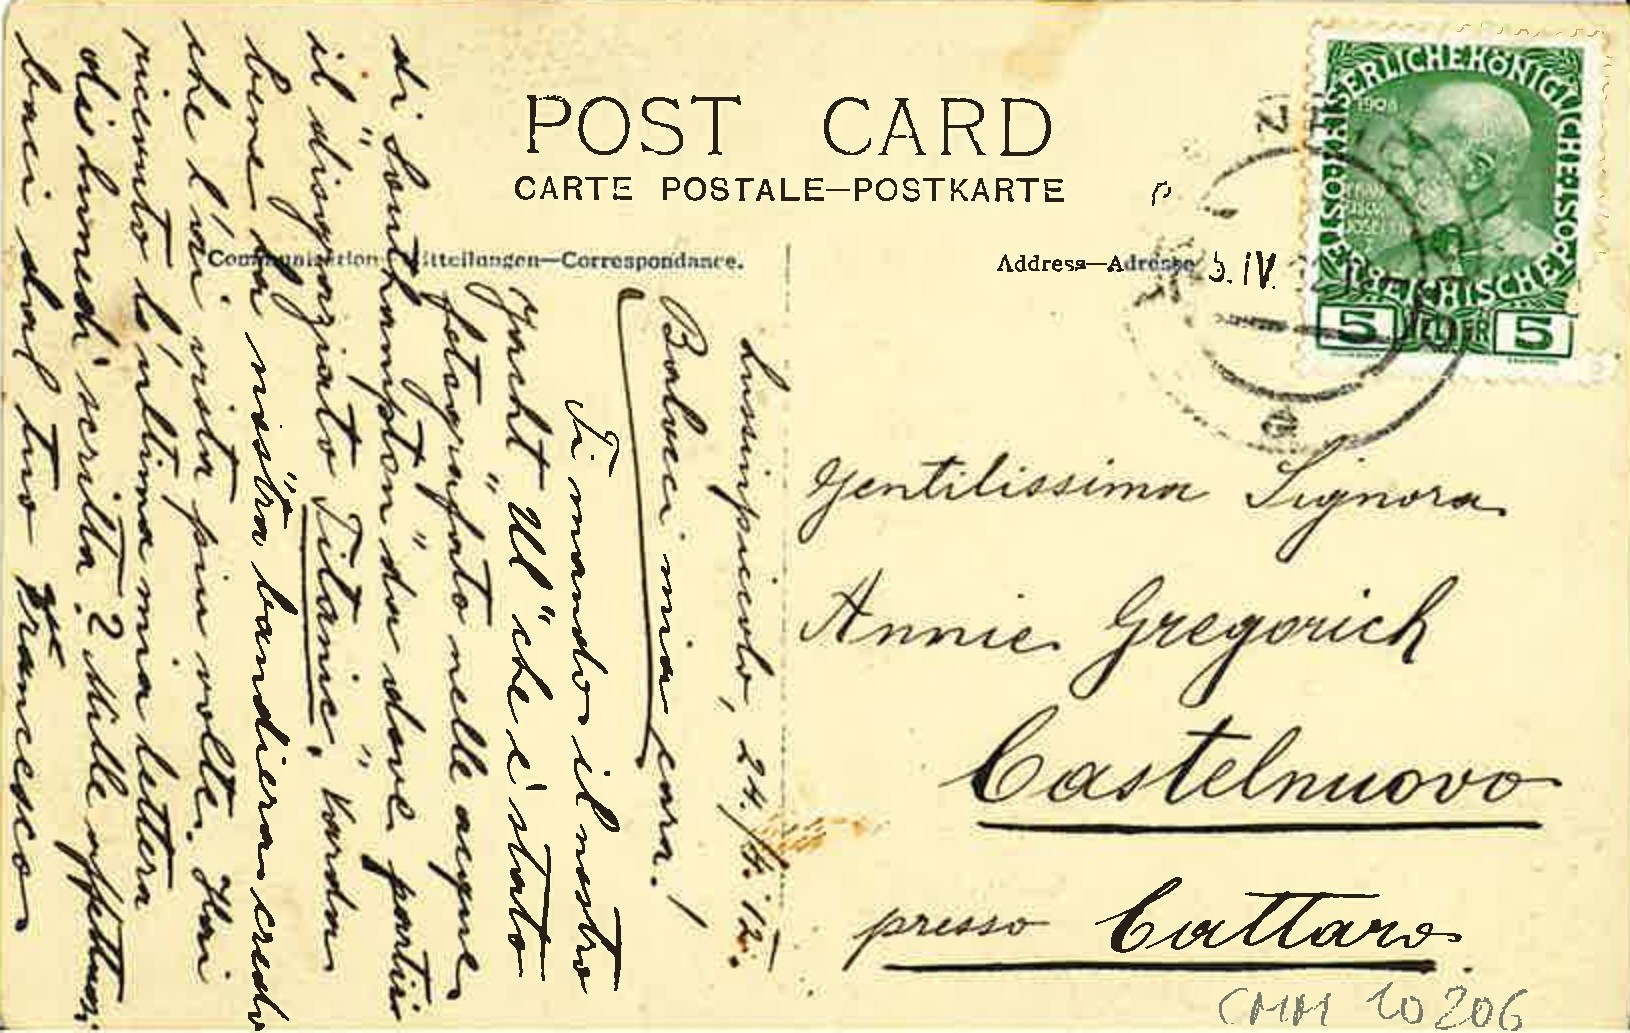 POST CARD
CARTE POSTALE—POSTKARTE
Communication Mitteilungen—Correspondance.
Address—Adresse
Lussinpiccolo, 24./4. 12.
Baluci mia cara!
Ti mando il nostro
Yacht "Ul" che é stato
fotografato nelle acque
di Southampton" da dove partiro
il disgraziato "Titanic". Varda
bene la nostra bandiera credo
che l'ai vista piu volte. Hai
ricevuto l'ultima mia lettera
di lunedi scritta? Mille affettuosi
baci dal tuo Francesco
Gentilissima Signora
Annie Gregorich
Castelnuovo
presso Cattaro.
KAISERLICHE KÖNIGLICHE ÖSTERREICHISCHE POST
1908
5 HELLER 5
5. IV. 12
CMM 10206